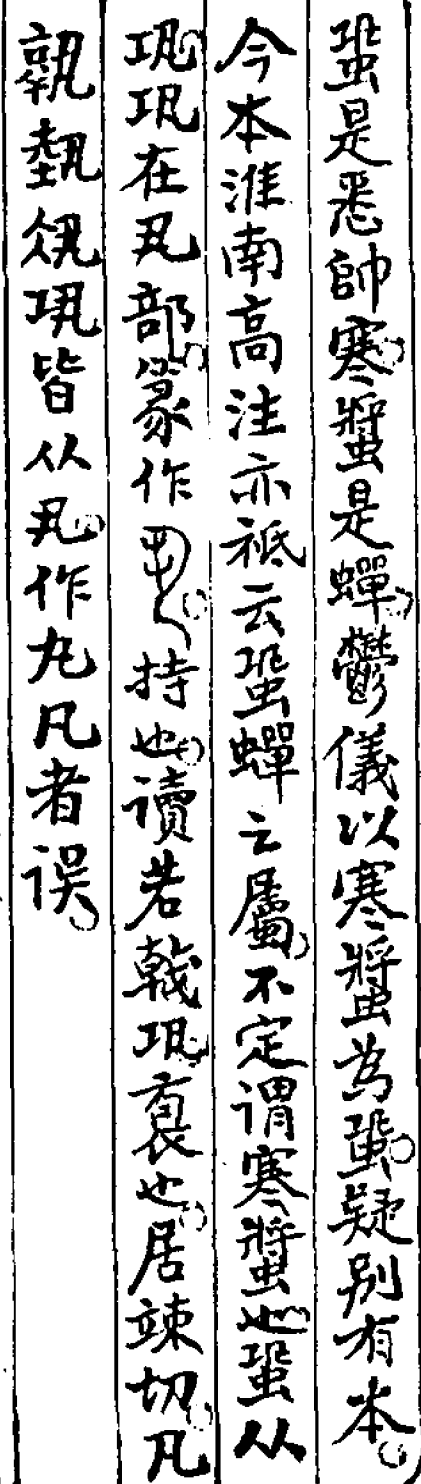 蛩是悉帥。寒螿是蟬。鬱儀以寒螿為蛩。疑别有本。
今本淮南高注亦祇云蛩蟬之屬。不定謂寒螿也。蛩从
巩。巩在丮部。篆作。持也。讀若戟。巩。褱也。居竦切。凡
執𡎐䝱巩皆从丮。作丸凡者误。